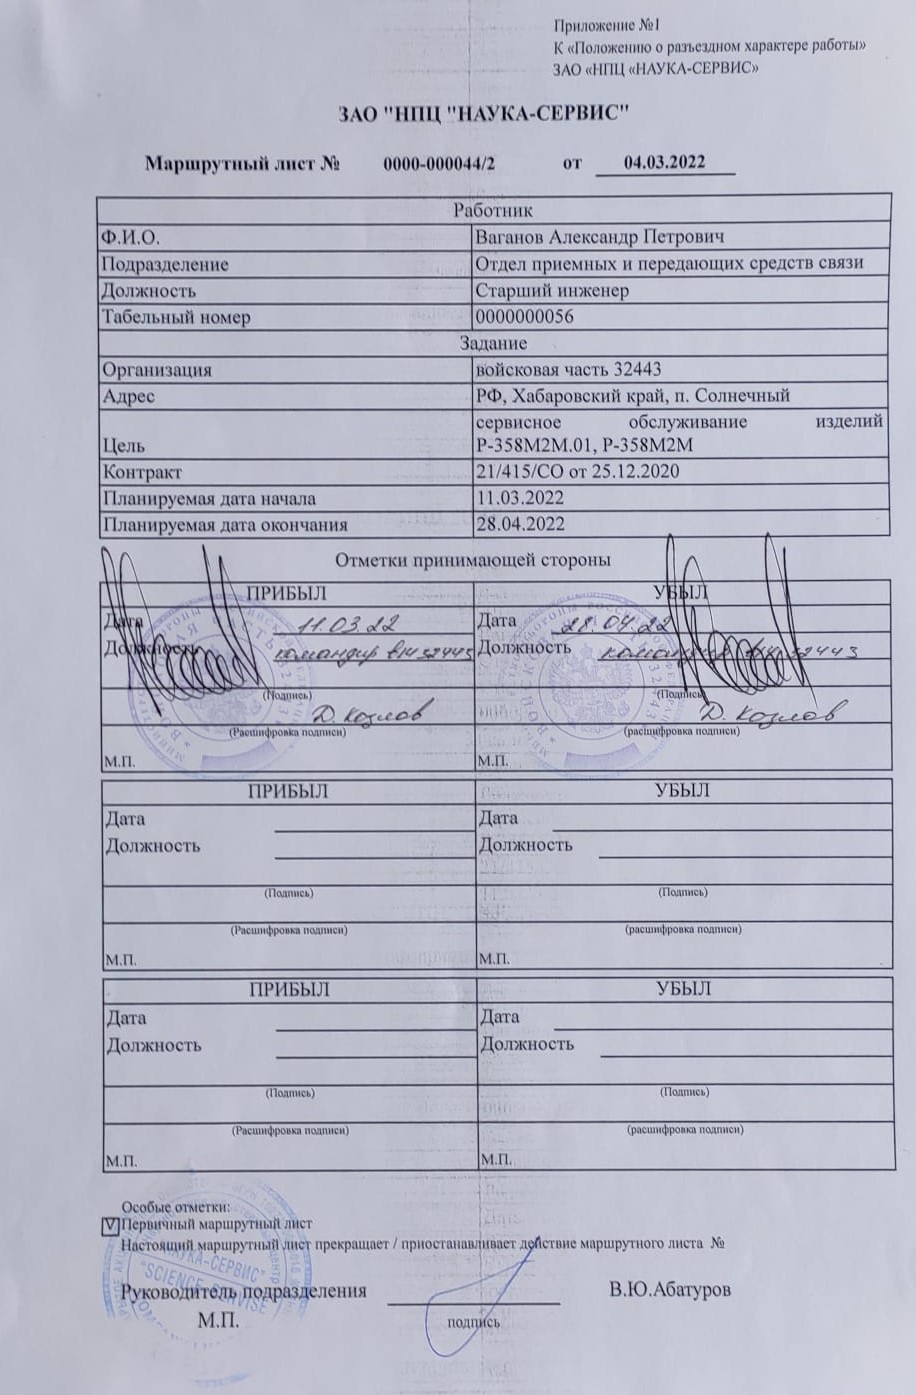 Приложение №1
К «Положению о разъездном характере работы»
ЗАО «НПЦ «НАУКА-СЕРВИС»
ЗАО "НПЦ "НАУКА-СЕРВИС"
Маршрутный лист № 0000-000044/2 от 04.03.2022
Работник
Ф.И.О. Ваганов Александр Петрович
Подразделение Отдел приемных и передающих средств связи
Должность Старший инженер
Табельный номер 0000000056
Задание
Организация войсковая часть 32443
Адрес РФ, Хабаровский край, п. Солнечный
сервисное обслуживание изделий
Цель Р-358М2М.01, Р-358М2М
Контракт 21/415/СО от 25.12.2020
Планируемая дата начала 11.03.2022
Планируемая дата окончания 28.04.2022
Отметки принимающей стороны
ПРИБЫЛ УБЫЛ
Дата 11.03.22 Дата 28.04.22
Должность командир в/ч 32443 Должность командир в/ч 32443
(Подпись) (Подпись)
Д. Козлов Д. Козлов
(Расшифровка подписи) (расшифровка подписи)
М.П. М.П.
ПРИБЫЛ УБЫЛ
Дата Дата
Должность Должность
(Подпись) (Подпись)
(Расшифровка подписи) (расшифровка подписи)
М.П. М.П.
ПРИБЫЛ УБЫЛ
Дата Дата
Должность Должность
(Подпись) (Подпись)
(Расшифровка подписи) (расшифровка подписи)
М.П. М.П.
Особые отметки:
V Первичный маршрутный лист
Настоящий маршрутный лист прекращает / приостанавливает действие маршрутного листа №
НАУКА-СЕРВИС"
"SCIENCE-SERVISE"
Руководитель подразделения В.Ю.Абатуров
М.П. подпись